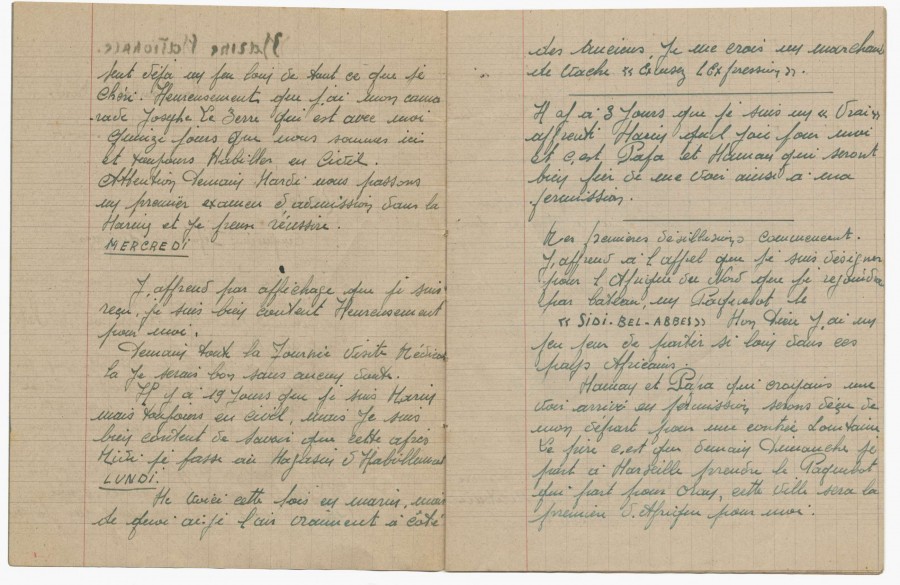 Marine Nationale.
sent déjà un peu loin de tout ce que je
Chéri. Heureusement que j'ai mon cama
rade Josephe Le Serre qui est avec moi
Quinze jours que nous sommes ici
et toujours Habiller en Civil.
Attention Demain Mardi nous passons
un premier examen d'admission dans la
Marine et je pense réussire.
MERCREDI
J'apprend par affichage que je suis
reçu, je suis bien content Heureusement
pour moi.
Demain toute la Journée Visite Médical
la Je serais bon sans aucun doute.
Il y à 19 Jours que je suis Marin
mais toujours en civil, mais Je suis
bien content de savoir que cette après
Midi je passe au Magasin d'Habillement
LUNDI.
Me voici cette fois en marin, mais
de quoi ai-je l'air vraiment à côté
des Anciens, Je me crois un marchand
de Vache "Excusez L'Expression".
Il y à 3 Jours que je suis un "Vrai"
apprenti Marin quel joie pour moi
et c,est, Papa et Maman qui seront
bien fier de me voir ainsi a ma
permission.
Mes premières désillusions commencent.
J'apprend à l'appel que je suis désigner
pour l'Afrique du Nord que je rejoindrai
par bateau, un Paquebot le
"SIDI-BEL-ABBES" Mon Dieu J'ai un
peu peur de partir si loin dans ces
pays Africains.
Maman et Papa qui croyais me
voir arrivé en permission serons déçu de
mon départ pour une contrée Lointaine
Le pire c,est que demain Dimanche je
part à Marseille prendre le Paquebot
qui part pour Oran, cette ville sera la
premier d'Afrique pour moi.